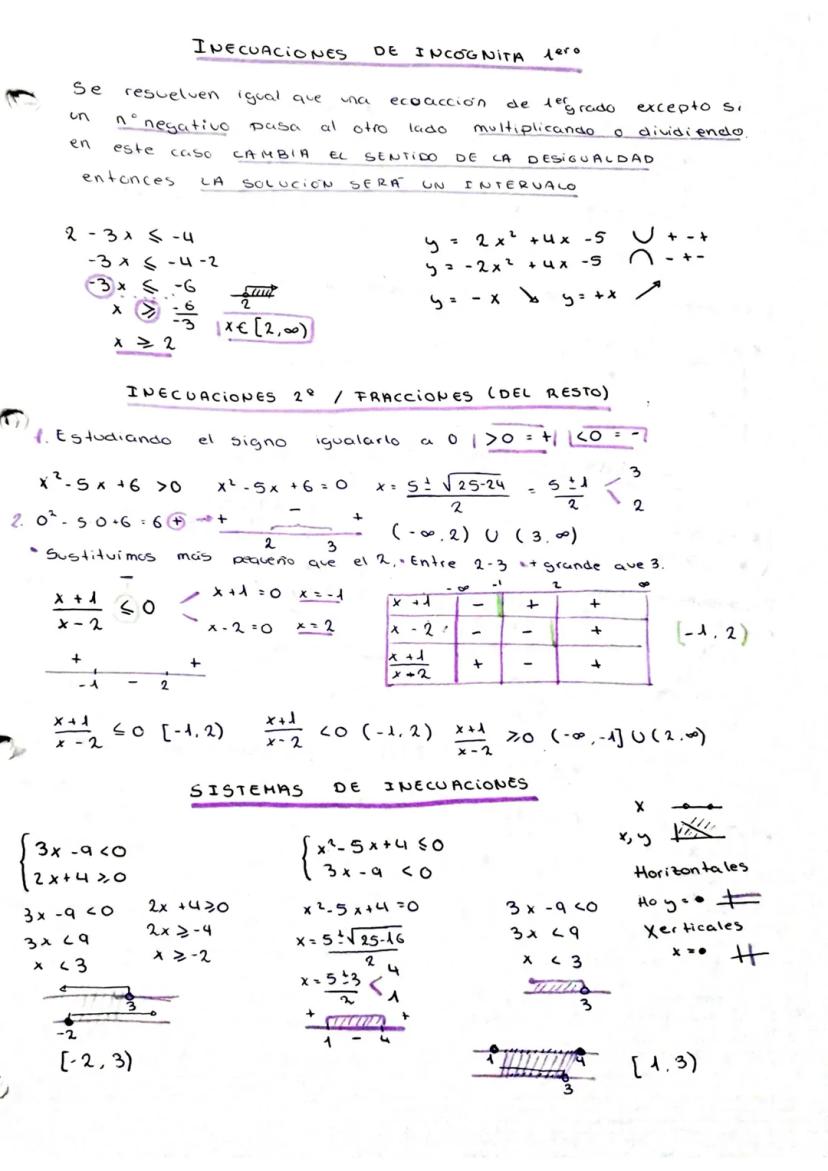 INECUACIONES DE INCÓGNITA 1ero
Se resuelven igual que una ecoacción de 1er grado excepto si
un nº negativo pasa al otro lado multiplicando o dividiendo.
en este caso CAMBIA EL SENTIDO DE LA DESIGUALDAD
entonces LA SOLUCIÓN SERÁ UN INTERVALO
2 - 3x ≤ -4
-3x ≤ -4 -2
-3x ≤ -6
x ≥ -6/-3
x ≥ 2
2
x ∈ [2, ∞)
y = 2x² + 4x - 5 ∪ + - +
y = -2x² + 4x - 5 ∩ - + -
y = -x ↘ y = +x ↗
INECUACIONES 2º / FRACCIONES (DEL RESTO)
1. Estudiando el signo igualarlo a 0 | >0 = + | | <0 = - |
x² - 5x + 6 > 0 x² - 5x + 6 = 0 x = 5 ± √25-24 / 2 = 5 ± 1 / 2 < 3 2
2. 0² - 5·0 + 6 = 6 + → + - +
2 3 (-∞, 2) ∪ (3, ∞)
• Sustituimos más pequeño que el 2, • Entre 2-3 • + grande que 3.
x+1 / x-2 ≤ 0 x+1 = 0 x = -1
x-2 = 0 x = 2
+ - +
-1 2
-∞ -1 2 ∞
x+1 - + +
x-2 - - +
x+1 / x+2 + - +
[-1, 2)
x+1 / x-2 ≤ 0 [-1, 2) x+1 / x-2 < 0 (-1, 2) x+1 / x-2 ≥ 0 (-∞, -1] ∪ (2, ∞)
SISTEMAS DE INECUACIONES
{ 3x - 9 < 0
2x + 4 ≥ 0
3x - 9 < 0 2x + 4 ≥ 0
3x < 9 2x ≥ -4
x < 3 x ≥ -2
3
-2
[-2, 3)
{ x² - 5x + 4 ≤ 0
3x - 9 < 0
x² - 5x + 4 = 0
x = 5 ± √25-16 / 2
x = 5 ± 3 / 2 < 4 1
+ +
1 - 4
3x - 9 < 0
3x < 9
x < 3
3
1 4
3
[1, 3)
x
x, y
Horizontales
Ho y = •
Xerticales
x = •